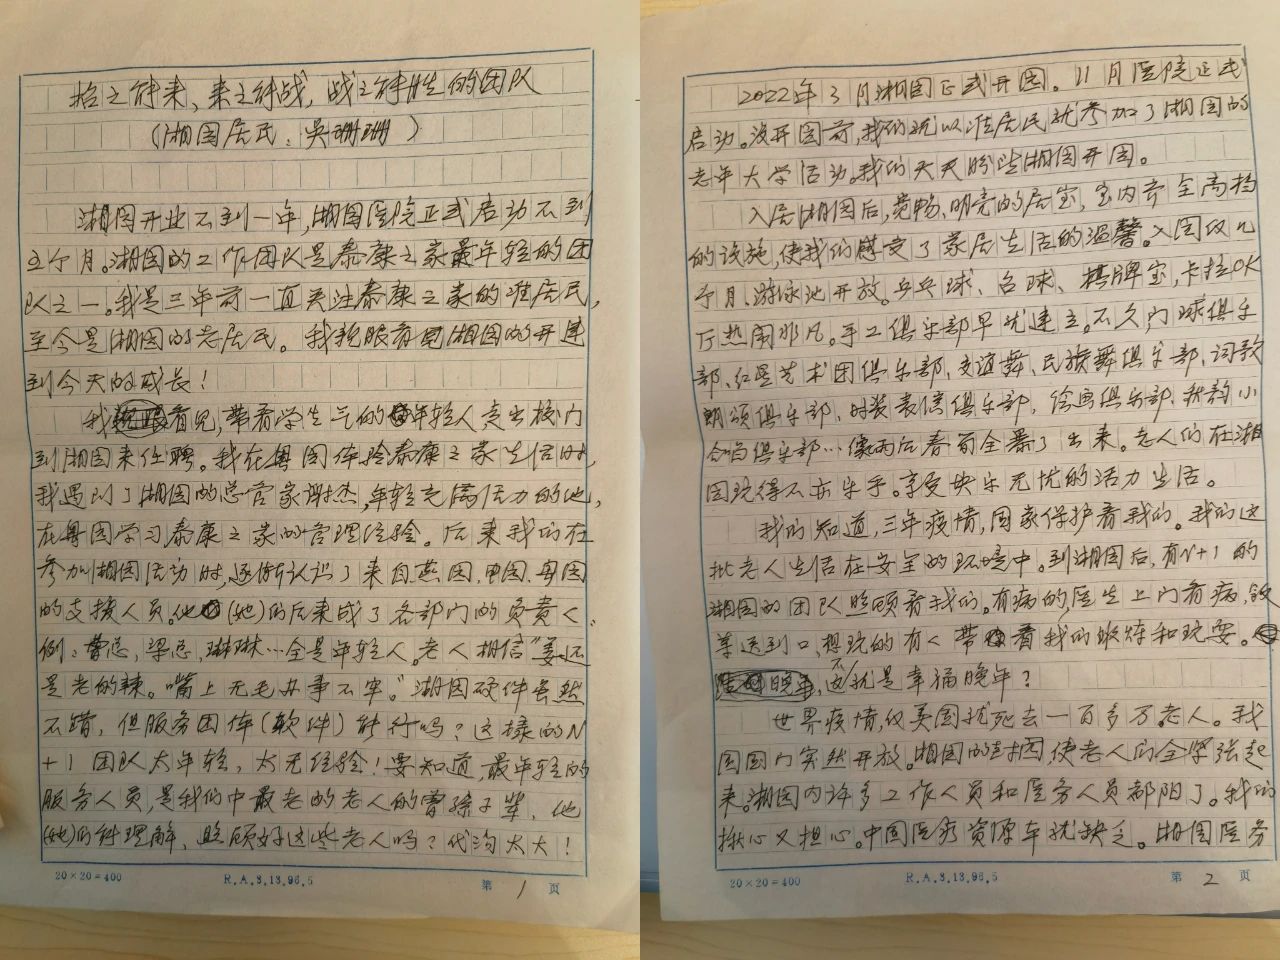 招之能来、来之能战,战之能胜的团队
(湘园居民:吴珊珊)
湘园开业不到一年,湘园医院正式启动不到
立个月。湘园的工作团队是泰康之家最年轻的团
队之一。我是三年前一直关注泰康之家的准居民,
至今是湘园的老居民。我亲眼看见湘园的开建
到今天的成长!
我看见,带着学生气的年轻人走出校门
到湘园来任聘。我在粤园体验泰康之家生活时,
我遇到了湘园的总管家谢杰,年轻充满活力的他,
在粤园学习泰康之家的管理经验。后来我们在
参加湘园活动时,逐渐认识了来自燕园,申园,粤园
的支援人员。他(她)们后来成了各部门的负责人。
例:曹总,梁总,琳琳…全是年轻人。老人相信“姜还
是老的辣。嘴上无毛办事不牢。”湘园硬件虽然
不错,但服务团体(软件)能行吗?这样的N
+1团队太年轻,太无经验!要知道,最年轻的
服务人员,是我们中最老的老人的曾孙子辈,他
(她)们能理解、照顾好这些老人吗?代沟太大!
20×20=400 R.A.3.13.96.5 第1页
2022年3月湘园正式开园。11月医院正式
启动。没开园前,我们就以准居民就参加了湘园的
老年大学活动。我们天天盼望湘园开园。
入居湘园后,宽畅、明亮的居室,室内齐全高档
的设施,使我们感受了家居生活的温馨。入园仅几
个月、游泳池开放。乒乓球、台球、棋牌室,卡拉OK
厅热闹非凡。手工俱乐部早就建立。不久,门球俱乐
部、红星艺术团俱乐部、交谊舞、民族舞俱乐部、词歌
朗颂俱乐部、时装表演俱乐部,绘画俱乐部、秋韵小
合唱俱乐部…像雨后春笋全暴了出来。老人们在湘
园玩得不亦乐乎。享受快乐无忧的活力生活。
我们知道,三年疫情,国家保护着我们。我们这
批老人生活在安全的环境中。到湘园后,有N+1的
湘园的团队照顾着我们。有病的,医生上门看病,饮
菜送到口,想玩的有人带着我们锻炼和玩耍。
这不就是幸福晚年?
世界疫情,仅美国就死去一百多万老人。我
国国门突然开放。湘园的封园使老人们全紧张起
来。湘园内许多工作人员和医务人员都阳了。我们
揪心又担心。中国医疗资源本就缺乏。湘园医务
20×20=400 R.A.3.13.96.5 第2页